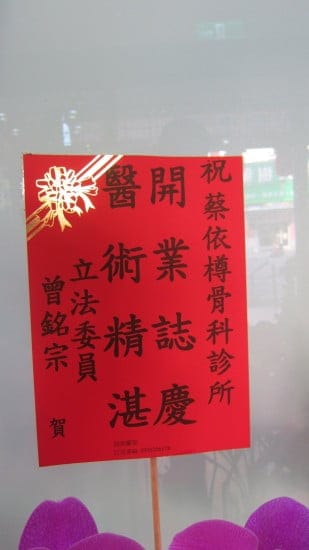 祝蔡依樽骨科診所
開業誌慶
醫術精湛
立法委員
曾銘宗 賀